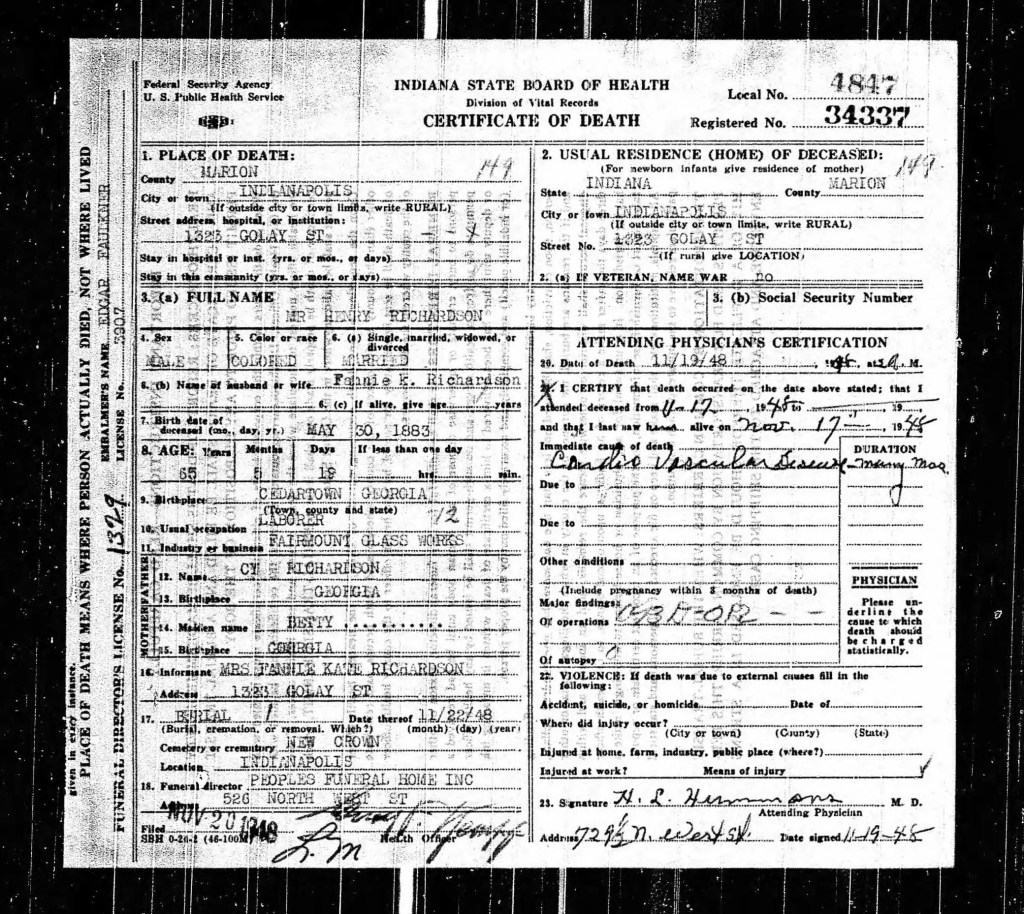 given in every instance.
PLACE OF DEATH MEANS WHERE PERSON ACTUALLY DIED, NOT WHERE LIVED
EMBALMER'S NAME EDGAR FAULKNER
FUNERAL DIRECTOR'S LICENSE No. 1329 LICENSE No. 3907
Federal Security Agency
U. S. Public Health Service
INDIANA STATE BOARD OF HEALTH
Division of Vital Records
CERTIFICATE OF DEATH
Local No. 4847
Registered No. 34337
1. PLACE OF DEATH:
County MARION 149
City or town INDIANAPOLIS
(If outside city or town limits, write RURAL)
Street address, hospital, or institution:
1323 GOLAY ST 1 4
Stay in hospital or inst. (yrs. or mos., or days)
Stay in this community (yrs. or mos., or days)
2. USUAL RESIDENCE (HOME) OF DECEASED:
(For newborn infants give residence of mother) 149
State INDIANA County MARION
City or town INDIANAPOLIS
(If outside city or town limits, write RURAL)
Street No. 1323 GOLAY ST
(If rural give LOCATION)
2. (a) IF VETERAN, NAME WAR no
3. (a) FULL NAME
MR HENRY RICHARDSON
3. (b) Social Security Number
4. Sex
MALE
5. Color or race
COLORED
6. (a) Single, married, widowed, or divorced
MARRIED
6. (b) Name of husband or wife Fannie K. Richardson
6. (c) If alive, give age years
7. Birth date of
deceased (mo., day, yr.) MAY 30, 1883
8. AGE: Years Months Days If less than one day
65 5 19 hrs. min.
9. Birthplace CEDARTOWN GEORGIA
(Town, county and state)
10. Usual occupation LABORER 12
11. Industry or business FAIRMOUNT GLASS WORKS
FATHER
12. Name CY RICHARDSON
13. Birthplace GEORGIA
MOTHER
14. Maiden name BETTY ...........
15. Birthplace GEORGIA
16. Informant MRS FANNIE KATE RICHARDSON
Address 1323 GOLAY ST
17. BURIAL 1 Date thereof 11/22/48
(Burial, cremation, or removal. Which?) (month) (day) (year)
Cemetery or crematory NEW CROWN
Location INDIANAPOLIS
18. Funeral director PEOPLES FUNERAL HOME INC
Address 526 NORTH WEST ST
Filed NOV 20 1948 Health Officer
SBH 0-26-2 (46-100M)
ATTENDING PHYSICIAN'S CERTIFICATION
20. Date of Death 11/19/48, 1948, at M.
21. I CERTIFY that death occurred on the date above stated; that I
attended deceased from 11-17, 1948 to , 19
and that I last saw alive on Nov. 17, 1948
Immediate cause of death DURATION
Cardio Vascular Disease - many mos
Due to
Due to
Other conditions
(Include pregnancy within 3 months of death)
Major findings:
Of operations
Of autopsy
PHYSICIAN
Please un-
derline the
cause to which
death should
be charged
statistically.
22. VIOLENCE: If death was due to external causes fill in the
following:
Accident, suicide, or homicide Date of
Where did injury occur?
(City or town) (County) (State)
Injured at home, farm, industry, public place (where?)
Injured at work? Means of injury
23. Signature H. L. Hummons M. D.
Attending Physician
Address 729½ N. West St. Date signed 11-19-48